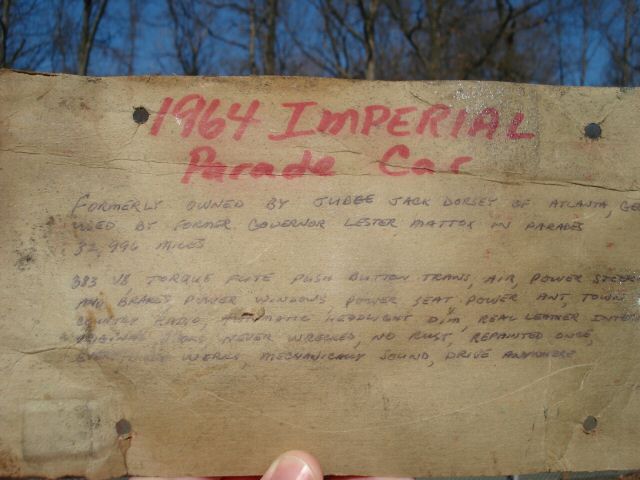 1964 IMPERIAL
Parade Car
FORMERLY OWNED BY JUDGE JACK DORSEY OF ATLANTA, GE
USED BY FORMER GOVERNOR LESTER MATTOX IN PARADES
32,996 MILES
383 V8, TORQUE FLITE PUSH BUTTON TRANS, AIR, POWER STEER
AND BRAKES POWER WINDOWS, POWER SEAT, POWER ANT, TOWN
COUNTRY RADIO, AUTOMATIC HEADLIGHT DIM, REAL LEATHER INTER
ORIGINAL NEVER WRECKED, NO RUST, REPAINTED ONCE,
EVERYTHING WORKS, MECHANICALLY SOUND, DRIVE ANYWHERE